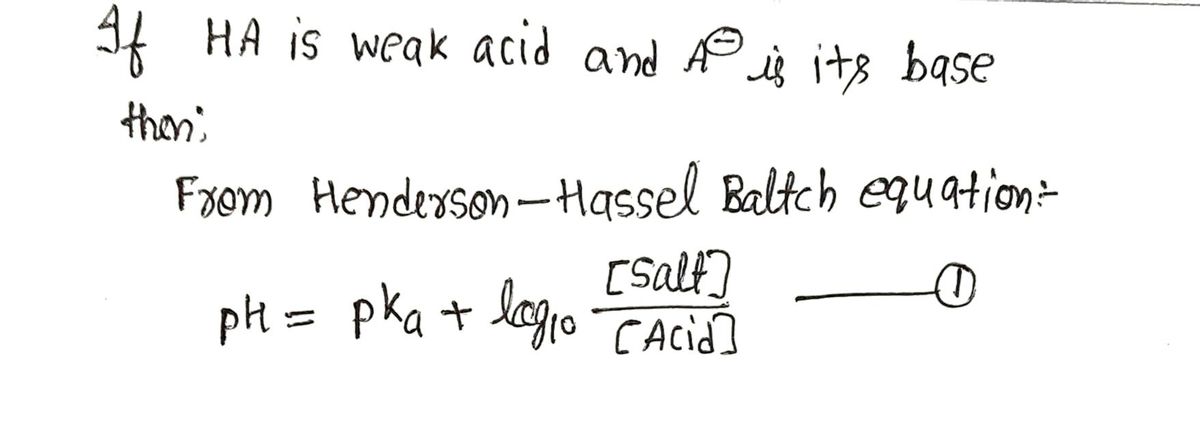 If HA is weak acid and A⊖ is its base
then;
From Henderson-Hassel Baltch equation:-
pH = pka + log10 [Salt]/[Acid] ——— ①